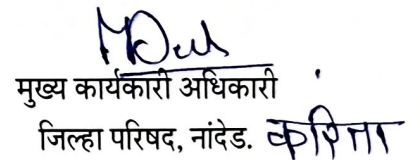 मुख्य कार्यकारी अधिकारी
जिल्हा परिषद, नांदेड. करिता